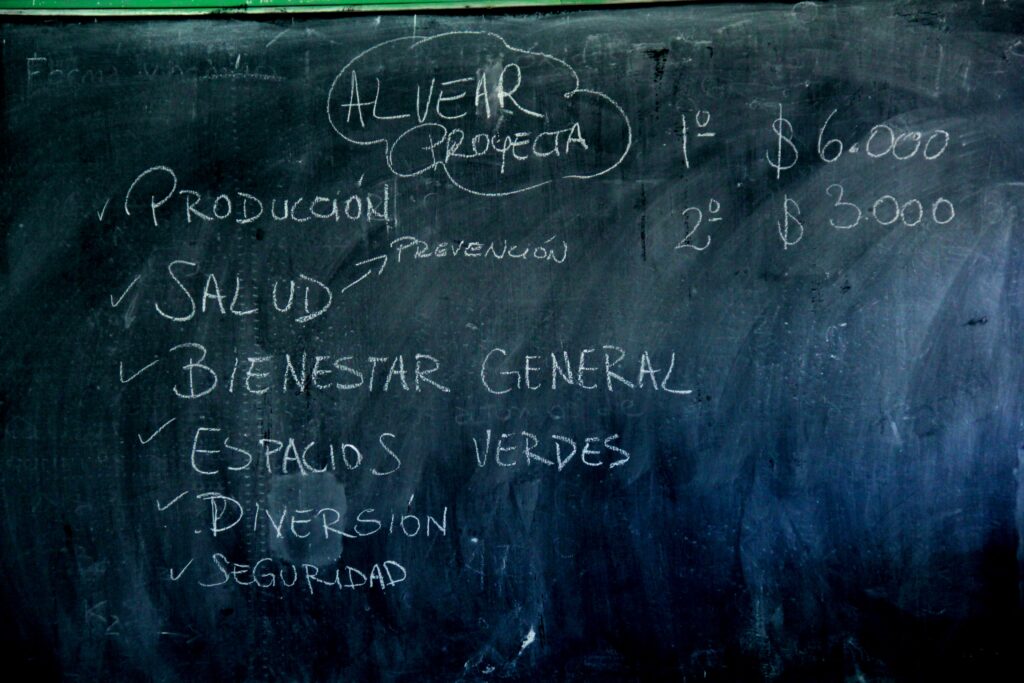 ALVEAR
PROYECTA
1º $ 6.000
2º $ 3.000
✓ PRODUCCIÓN
✓ SALUD → PREVENCIÓN
✓ BIENESTAR GENERAL
✓ ESPACIOS VERDES
✓ DIVERSIÓN
✓ SEGURIDAD